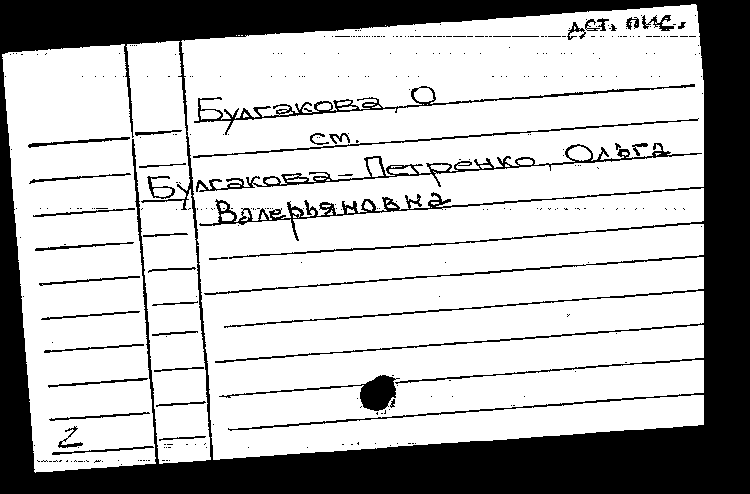 дст. пис.
Булгакова, О
см.
Булгакова-Петренко, Ольга
Валерьяновна
2